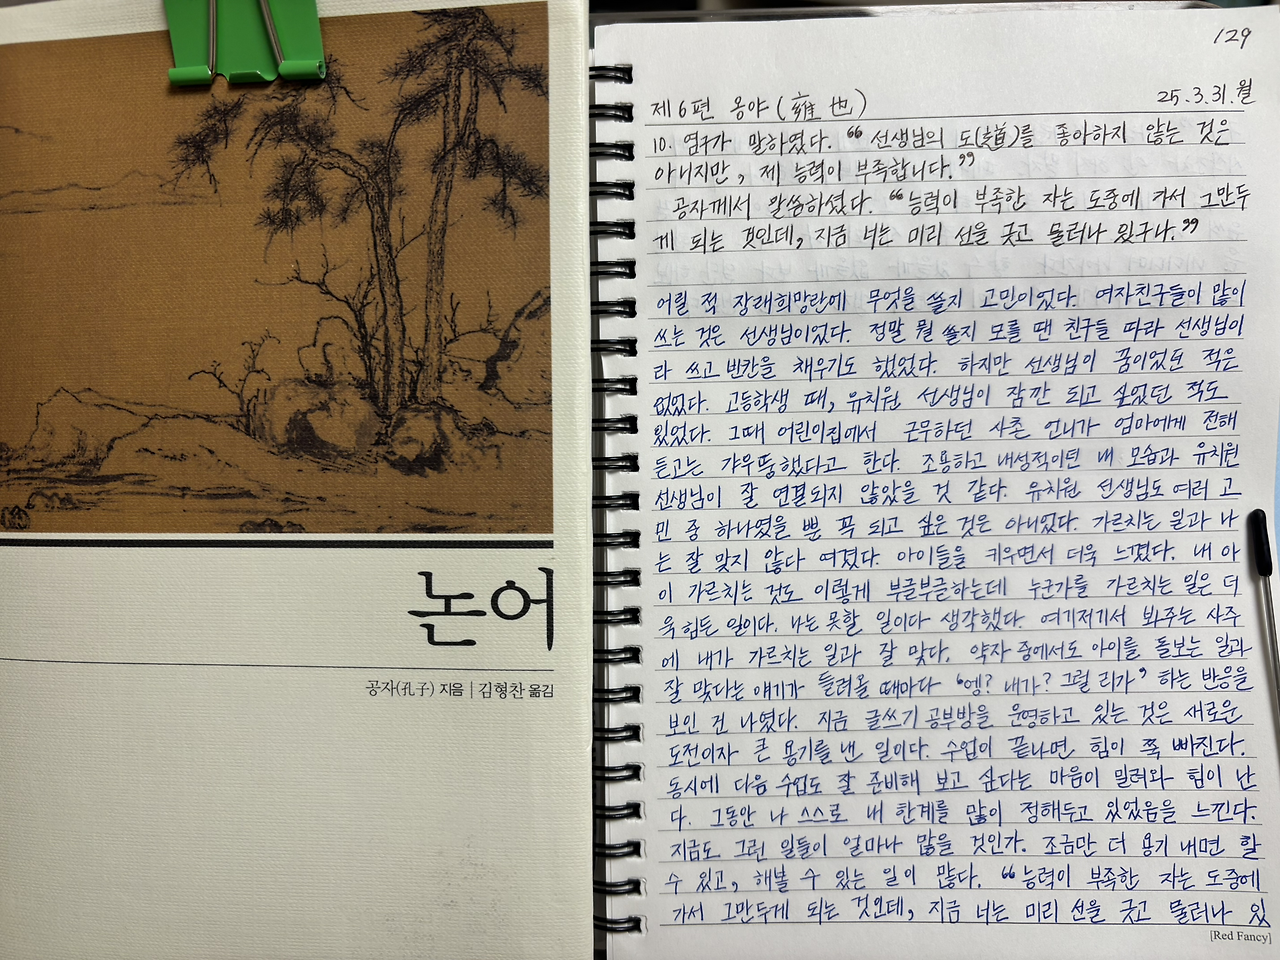 논어
공자(孔子) 지음 | 김형찬 옮김
129
제 6편 옹야(雍也) 25.3.31.월
10. 염구가 말하였다. “선생님의 도(道)를 좋아하지 않는 것은
아니지만, 제 능력이 부족합니다.”
공자께서 말씀하셨다. “능력이 부족한 자는 도중에 가서 그만두
게 되는 것인데, 지금 너는 미리 선을 긋고 물러나 있구나.”
어릴 적 장래희망란에 무엇을 쓸지 고민이었다. 여자친구들이 많이
쓰는 것은 선생님이었다. 정말 뭘 쓸지 모를 땐 친구들 따라 선생님이
라 쓰고 빈칸을 채우기도 했었다. 하지만 선생님이 꿈이었던 적은
없었다. 고등학생 때, 유치원 선생님이 잠깐 되고 싶었던 적도
있었다. 그때 어린이집에서 근무하던 사촌 언니가 엄마에게 전해
듣고는 갸우뚱했다고 한다. 조용하고 내성적이던 내 모습과 유치원
선생님이 잘 연결되지 않았을 것 같다. 유치원 선생님도 여러 고
민 중 하나였을 뿐 꼭 되고 싶은 것은 아니었다. 가르치는 일과 나
는 잘 맞지 않다 여겼다. 아이들을 키우면서 더욱 느꼈다. 내 아
이 가르치는 것도 이렇게 부글부글하는데 누군가를 가르치는 일은 더
욱 힘든 일이다. 나는 못할 일이다 생각했다. 여기저기서 봐주는 사주
에 내가 가르치는 일과 잘 맞다, 약자 중에서도 아이를 돌보는 일과
잘 맞다는 얘기가 들려올 때마다 ‘엥? 내가? 그럴 리가’ 하는 반응을
보인 건 나였다. 지금 글쓰기 공부방을 운영하고 있는 것은 새로운
도전이자 큰 용기를 낸 일이다. 수업이 끝나면 힘이 쭉 빠진다.
동시에 다음 수업도 잘 준비해 보고 싶다는 마음이 밀려와 힘이 난
다. 그동안 나 스스로 내 한계를 많이 정해두고 있었음을 느낀다.
지금도 그런 일들이 얼마나 많을 것인가. 조금만 더 용기 내면 할
수 있고, 해볼 수 있는 일이 많다. “능력이 부족한 자는 도중에
가서 그만두게 되는 것인데, 지금 너는 미리 선을 긋고 물러나 있
[Red Fancy]